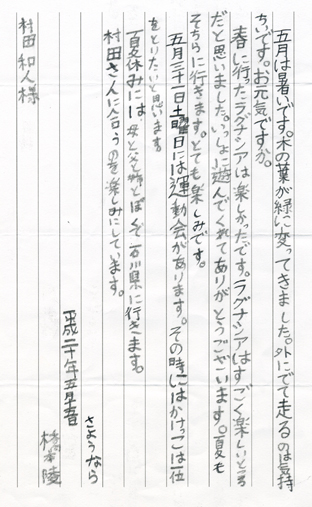 五月は暑いです。木の葉が緑に変ってきました。外にでて走るのは気持
ちいです。お元気ですか。
春に行ったラグナシアは楽しかったです。ラグナシアはすごく楽しいところ
だと思いました。いっしょに遊んでくれてありがとうございます。夏も
そちらに行きます。とても楽しみです。
五月三十一日土曜日には運動会があります。その時にはかけっこは一位
をとりたいと思います。
夏休みには、母と父と
ぼくで石川県に行きます。
村田さんに合うのを楽しみにしています。
さようなら
平成二十年五月
橋本 陵
村田 和人様